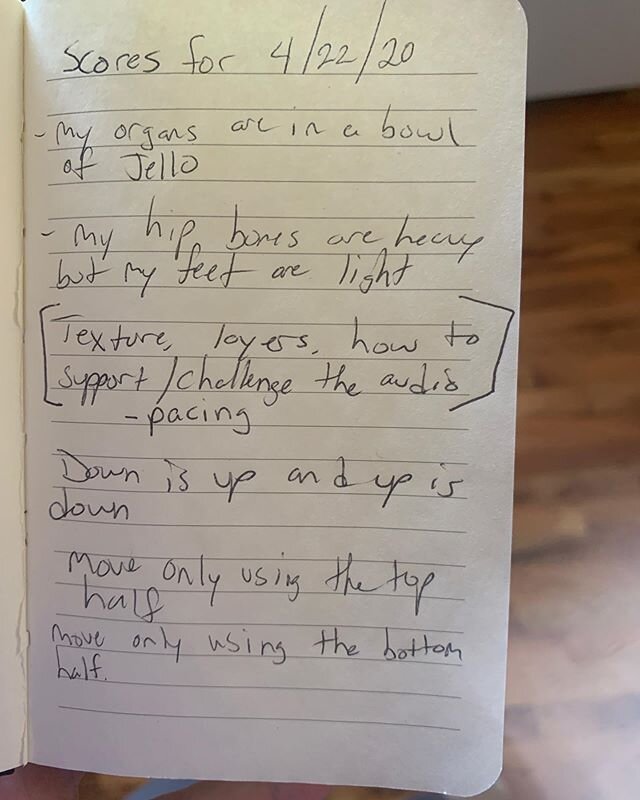 Scores for 4/22/20
- my organs are in a bowl
of Jello
- my hip bones are heavy
but my feet are light
[Texture, layers, how to
support/challenge the audio]
- pacing
Down is up and up is
down
Move only using the top
half
Move only using the bottom
half.